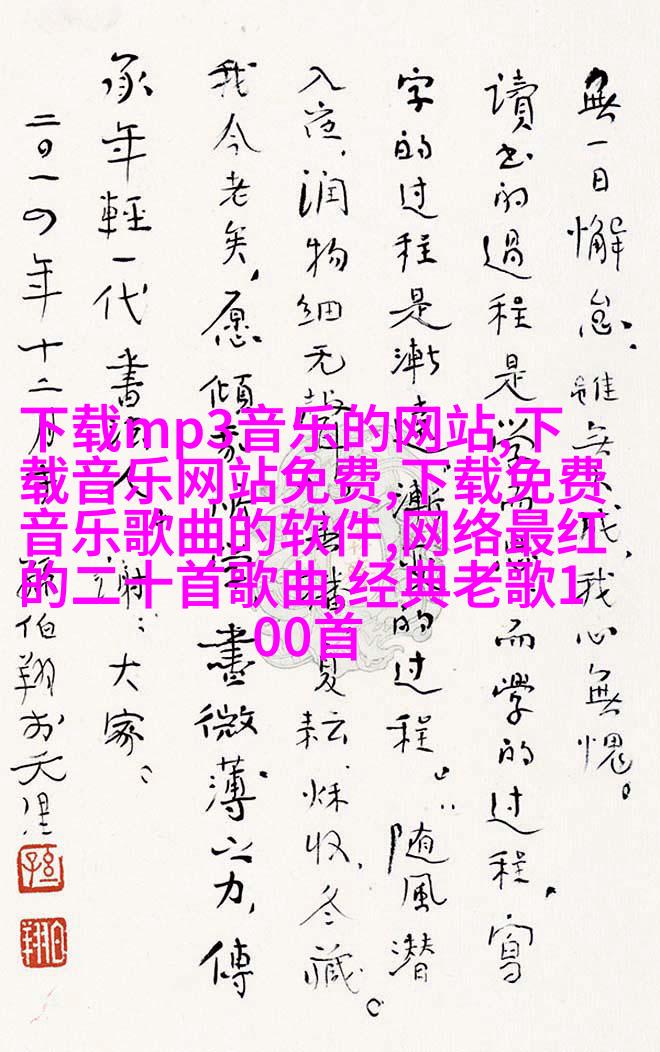 無一日懈怠,雖無,我心無愧。
讀书的過程是學而學的过程,寫
字的过程是漸漸的过程。随風潜
入夜,润物细无声。春播夏耘,秌收,冬藏。
我今老矣,愿傾家所盡微薄之力,傳
承年輕一代書法人。谢谢大家。
二〇一四年十二月孫伯翔於天津
下载mp3音乐的网站,下
载音乐网站免费,下载免费
音乐歌曲的软件,网络最红
的二十首歌曲,经典老歌1
00首